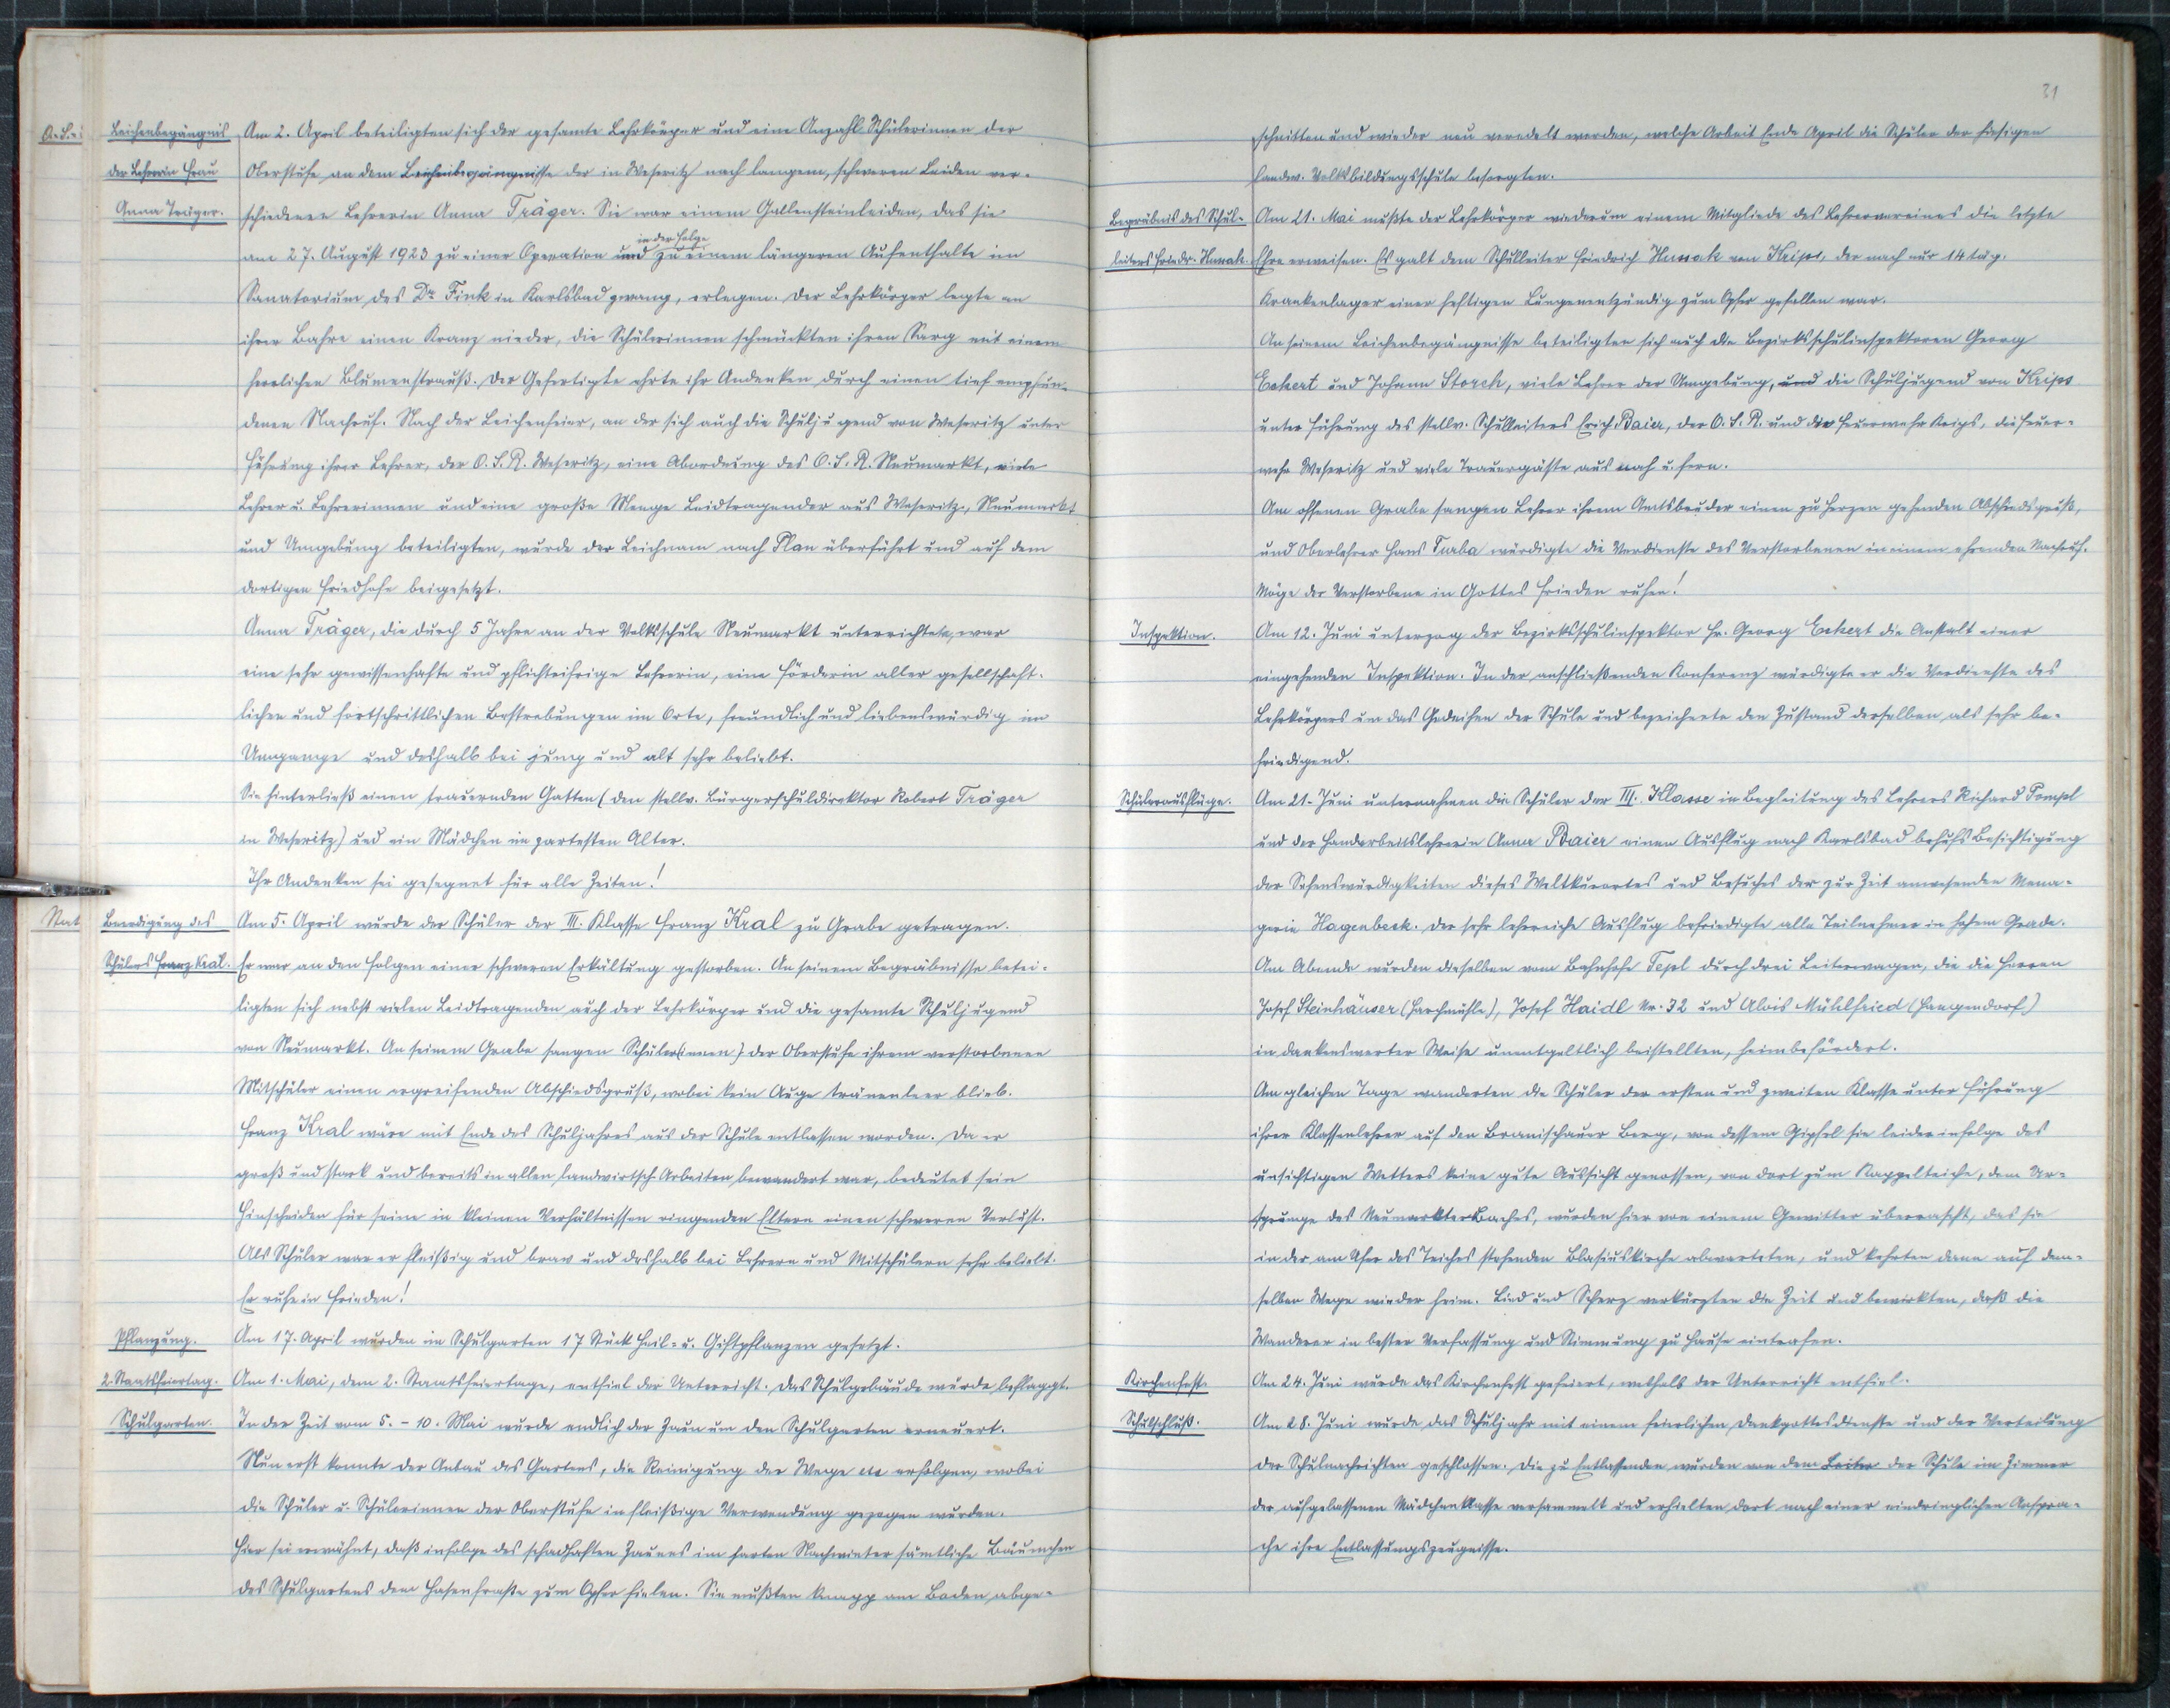 O.-S.-
Leichenbegängnis
der Lehrerin Frau
Anna Träger.
Am 2. April beteiligten sich der gesamte Lehrkörper und eine Anzahl Schülerinnen der
Oberstufe an dem Leichenbegängnisse der in Weseritz nach langem, schweren Leiden ver-
schiedenen Lehrerin Anna Träger. Sie war einem Gallensteinleiden, das sie
in der Folge
am 27. August 1923 zu einer Operation und zu einem längeren Aufenthalte im
Sanatorium des Dr. Fink in Karlsbad zwang, erlegen. Der Lehrkörper legte an
ihrer Bahre einen Kranz nieder, die Schülerinnen schmückten ihren Sarg mit einem
herrlichen Blumenstrauß. Der Gefertigte ehrte ihr Andenken durch einen tief empfun-
denen Nachruf. Nach der Leichenfeier, an der sich auch die Schuljugend von Weseritz unter
Führung ihrer Lehrer, der O. S. R. Weseritz, eine Abordnung des O. S. R. Neumarkt, viele
Lehrer u. Lehrerinnen und eine große Menge Leidtragender aus Weseritz, Neumarkt
und Umgebung beteiligten, wurde der Leichnam nach Plan überführt und auf dem
dortigen Friedhofe beigesetzt.
Anna Träger, die durch 5 Jahre an der Volksschule Neumarkt unterrichtete, war
eine sehr gewissenhafte und pflichteifrige Lehrerin, eine Förderin aller gesellschaft-
lichen und fortschrittlichen Bestrebungen im Orte, freundlich und liebenswürdig im
Umgange und deshalb bei jung und alt sehr beliebt.
Sie hinterließ einen trauernden Gatten (den stellv. Bürgerschuldirektor Robert Träger
in Weseritz) und ein Mädchen im zartesten Alter.
Ihr Andenken sei gesegnet für alle Zeiten!
Beerdigung des
Schülers Franz Kral.
Am 5. April wurde der Schüler der III. Klasse Franz Kral zu Grabe getragen.
Er war an den Folgen einer schweren Erkältung gestorben. An seinem Begräbnisse betei-
ligten sich nebst vielen Leidtragenden auch der Lehrkörper und die gesamte Schuljugend
von Neumarkt. An seinem Grabe sangen Schüler(innen) der Oberstufe ihrem verstorbenen
Mitschüler einen ergreifenden Abschiedsgruß, wobei kein Auge tränenleer blieb.
Franz Kral wäre mit Ende des Schuljahres aus der Schule entlassen worden. Da er
groß und stark und bereits in allen landwirtsch. Arbeiten bewandert war, bedeutet sein
Hinscheiden für seine in kleinen Verhältnissen ringenden Eltern einen schweren Verlust.
Als Schüler war er fleißig und brav und deshalb bei Lehrern und Mitschülern sehr beliebt.
Er ruhe in Frieden!
Pflanzung.
Am 17. April wurden im Schulgarten 17 Stück Heil- u. Giftpflanzen gesetzt.
2. Staatsfeiertag.
Am 1. Mai, dem 2. Staatsfeiertage, entfiel der Unterricht. Das Schulgebäude wurde beflaggt.
Schulgarten.
In der Zeit vom 5. - 10. Mai wurde endlich der Zaun um den Schulgarten erneuert.
Nun erst konnte der Anbau des Gartens, die Reinigung der Wege etc erfolgen, wobei
die Schüler u. Schülerinnen der Oberstufe in fleißige Verwendung gezogen wurden.
Hier sei erwähnt, daß infolge des schadhaften Zaunes im harten Nachwinter sämtliche Bäumchen
des Schulgartens dem Hasenfraße zum Opfer fielen. Sie mußten knapp am Boden abge-
31
schnitten und wieder neu veredelt werden, welche Arbeit Ende April die Schüler der hiesigen
landw. Volksbildungsschule besorgten.
Begräbnis des Schul-
leiters Friedr. Hussak.
Am 21. Mai mußte der Lehrkörper wiederum einem Mitgliede des Lehrervereines die letzte
Ehre erweisen. Es galt dem Schulleiter Friedrich Hussak von Krips, der nach nur 14 täg.
Krankenlager einer heftigen Lungenentzündig zum Opfer gefallen war.
An seinem Leichenbegängnisse beteiligten sich auch die Bezirksschulinspektoren Georg
Eckert und Johann Storch, viele Lehrer der Umgebung, und die Schuljugend von Krips
unter Führung des stellv. Schulleiters Erich Baier, der O. S. R. und die Feuerwehr Krips, die Feuer-
wehr Weseritz und viele Trauergäste aus nah u. fern.
Am offenen Grabe sangen Lehrer ihrem Amtsbruder einen zu Herzen gehenden Abschiedsgruß,
und Oberlehrer Hans Turba würdigte die Verdienste des Verstorbenen in einem ehrenden Nachruf.
Möge der Verstorbene in Gottes Frieden ruhen!
Inspektion.
Am 12. Juni unterzog der Bezirksschulinspektor Hr. Georg Eckert die Anstalt einer
eingehenden Inspektion. In der anschließenden Konferenz würdigte er die Verdienste des
Lehrkörpers um das Gedeihen der Schule und bezeichnete den Zustand derselben als sehr be-
friedigend.
Schülerausflüge.
Am 21. Juni unternahmen die Schüler der III. Klasse in Begleitung des Lehrers Richard Tompl
und der Handarbeitslehrerin Anna Baier einen Ausflug nach Karlsbad behufs Besichtigung
der Sehenswürdigkeiten dieses Weltkurortes und Besuches der zur Zeit anwesenden Mena-
gerie Hagenbeck. Der sehr lehrreiche Ausflug befriedigte alle Teilnehmer in hohem Grade.
Am Abende wurden dieselben vom Bahnhofe Tepl durch drei Leiterwagen, die die Herren
Josef Steinhäuser (Harchmühle), Josef Haidl Nr. 32 und Alois Mühlfried (Hangendorf)
in dankenswerter Weise unentgeltlich beistellten, heimbefördert.
Am gleichen Tage wanderten die Schüler der ersten und zweiten Klasse unter Führung
ihrer Klassenlehrer auf den Branischauer Berg, von dessem Gipfel sie leider infolge des
unsichtigen Wetters keine gute Aussicht genossen, von dort zum Kappelteiche, dem Ur-
sprunge des Neumarkter Baches, wurden hier von einem Gewitter überrascht, das sie
in der am Ufer des Teiches stehenden Blasiuskirche abwarteten, und kehrten dann auf dem-
selben Wege wieder heim. Lied und Scherz verkürzten die Zeit und bewirkten, daß die
Wanderer in bester Verfassung und Stimmung zu Hause eintrafen.
Kirchenfest.
Am 24. Juni wurde das Kirchenfest gefeiert, weshalb der Unterricht entfiel.
Schulschluß.
Am 28. Juni wurde das Schuljahr mit einem feierlichen Dankgottesdienste und der Verteilung
der Schulnachrichten geschlossen. Die zu Entlassenden wurden von dem Leiter der Schule im Zimmer
der aufgelassenen Mädchenklasse versammelt und erhielten dort nach einer eindringlichen Anspra-
che ihre Entlassungszeugnisse.